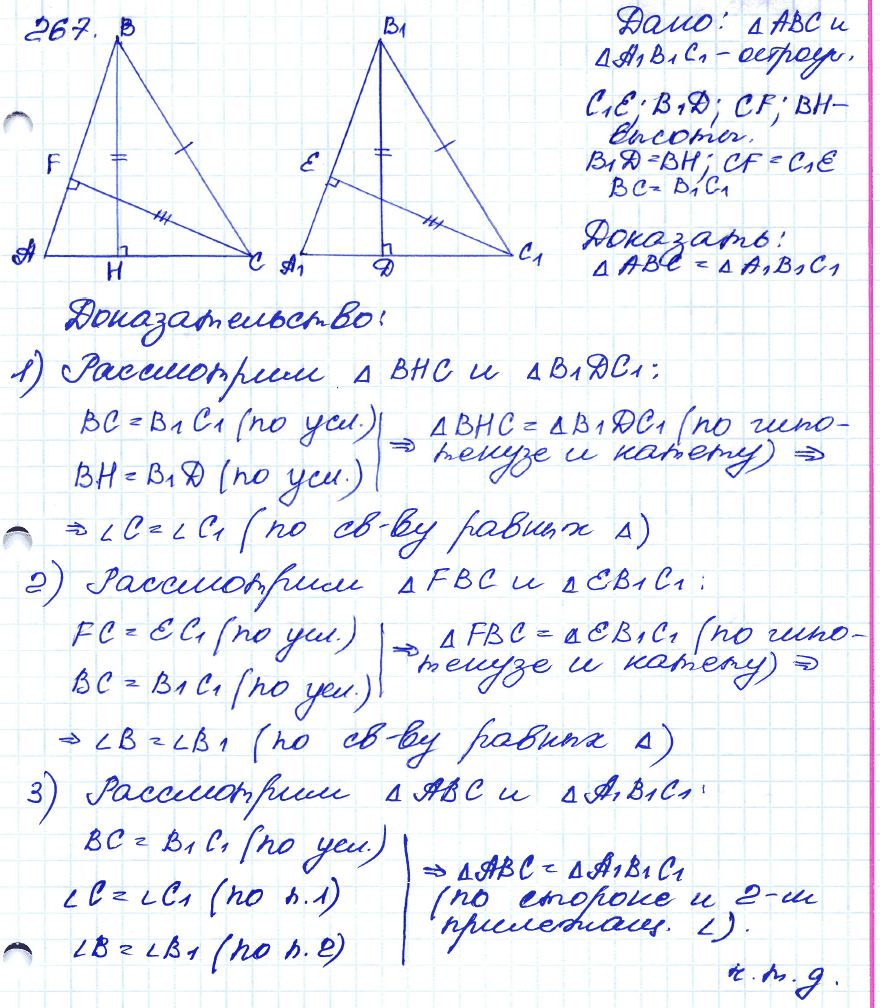 267.
B
F
A
H
C
B1
E
A1
D
C1
Дано: △ABC и
△A1B1C1 – остроуг.
C1E; B1D; CF; BH–
высоты.
B1D=BH; CF=C1E
BC=B1C1
Доказать:
△ABC = △A1B1C1
Доказательство:
1) Рассмотрим △BHC и △B1DC1:
BC = B1C1 (по усл.)
BH = B1D (по усл.)
⇒ △BHC = △B1DC1 (по гипо-
тенузе и катету) ⇒
⇒ ∠C = ∠C1 (по св-ву равных △)
2) Рассмотрим △FBC и △EB1C1:
FC = EC1 (по усл.)
BC = B1C1 (по усл.)
⇒ △FBC = △EB1C1 (по гипо-
тенузе и катету) ⇒
⇒ ∠B = ∠B1 (по св-ву равных △)
3) Рассмотрим △ABC и △A1B1C1:
BC = B1C1 (по усл.)
∠C = ∠C1 (по п.1)
∠B = ∠B1 (по п.2)
⇒ △ABC = △A1B1C1
(по стороне и 2-м
прилежащ. ∠).
ч.т.д.